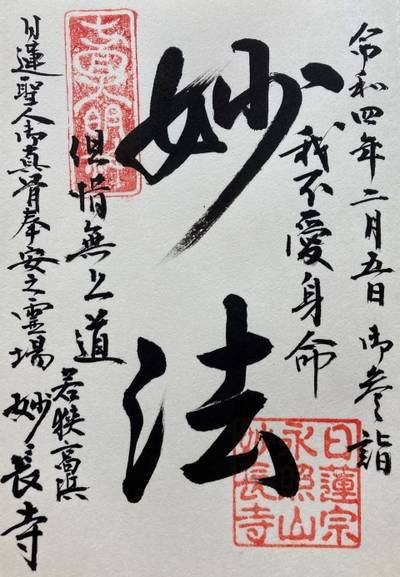 令和四年二月五日 御参詣
我不愛身命
妙法
但惜無上道
若狭高浜
日蓮聖人御真骨奉安之霊場 妙長寺
日蓮宗
永照山
妙長寺